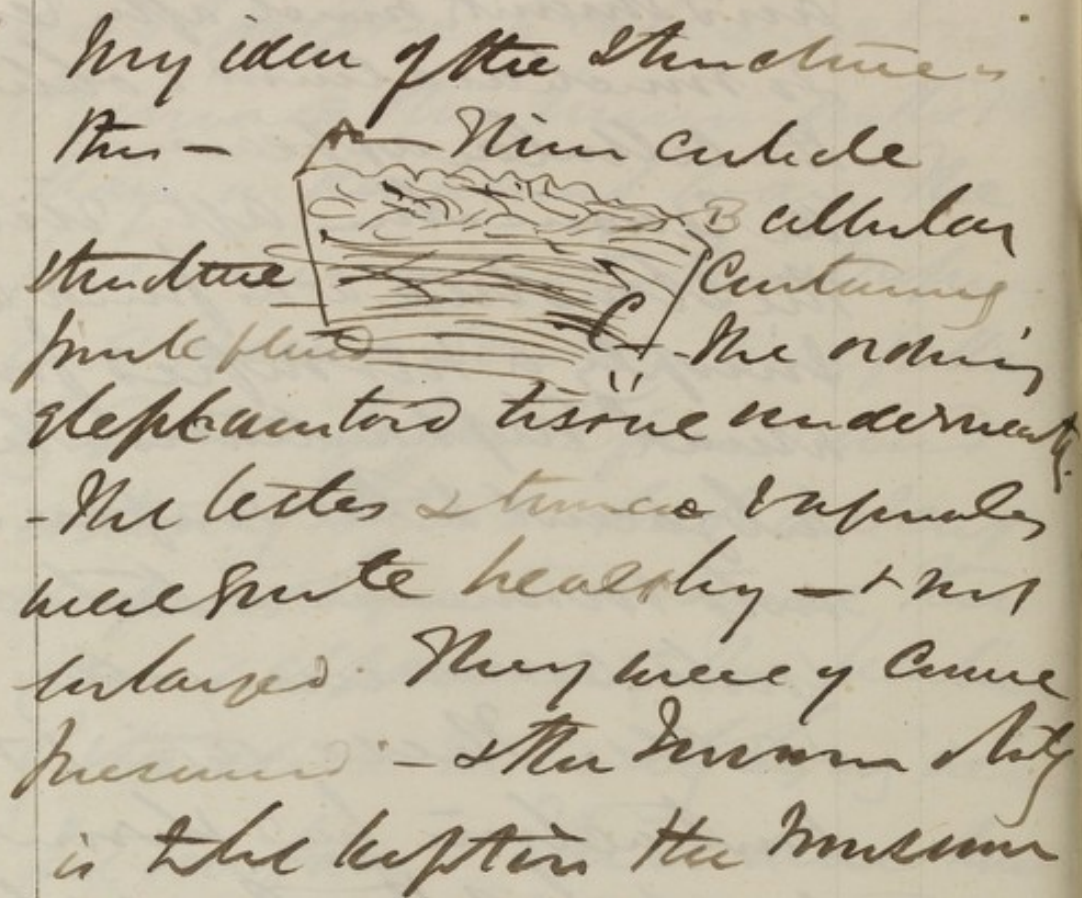 My idea of the structure is
this — A — Thin cuticle
B cellular
structure containing
pink fluid C — The ordinary
elephantoid tissue underneath.
- The testes & tunicae vaginales
were quite healthy — & not
enlarged. They were of course
preserved — & the tumour itself
is to be kept in the museum